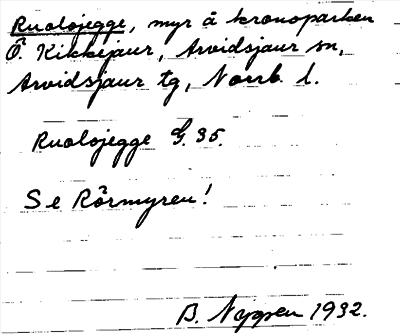 Ruolojegge, myr å kronoparken
Ö. Kikkejaur, Arvidsjaur sn,
Arvidsjaur tg, Norrb. l.
Ruolojegge G. 35.
Se Rörmyren!
B. Nygren 1932.